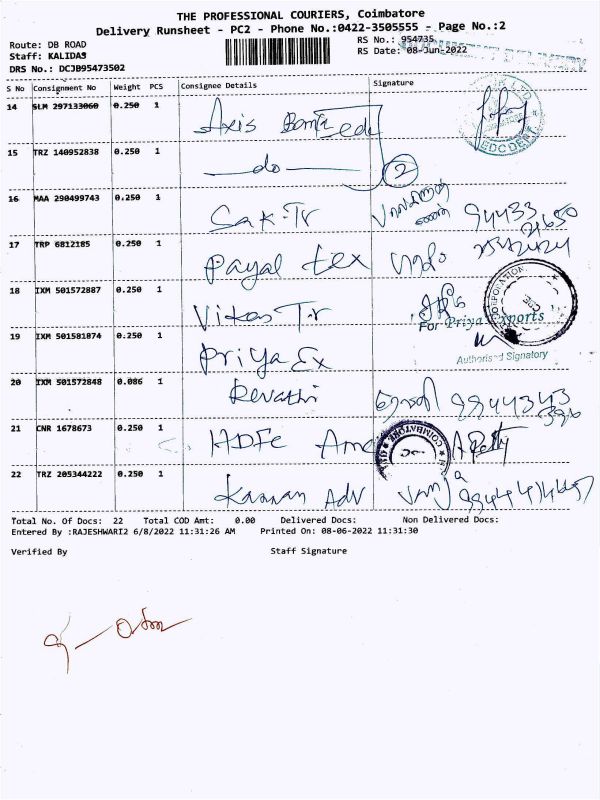 THE PROFESSIONAL COURIERS, Coimbatore
Delivery Runsheet - PC2 - Phone No.:0422-3505555 - Page No.:2
Route: DB ROAD
RS No.: 954735
Staff: KALIDAS
RS Date: 08-Jun-2022
DRS No.: DCJB95473502
S No Consignment No Weight PCS Consignee Details Signature
14 SLM 297133060 0.250 1 Axis Bank
EDC DEPT
15 TRZ 140952838 0.250 1 do 2
16 MAA 290499743 0.250 1 Sak. Tr 94433
17 TRP 6812185 0.250 1 Payal tex
18 IXM 501572887 0.250 1 Vikas Tr
CORPORATION
For Priya Exports
19 IXM 501581874 0.250 1 Priya Ex
Authorised Signatory
20 IXM 501572848 0.086 1 Revathi
21 CNR 1678673 0.250 1 HDFC Amc
COIMBATORE
22 TRZ 205344222 0.250 1 Kannan Adv
Total No. Of Docs: 22 Total COD Amt: 0.00 Delivered Docs: Non Delivered Docs:
Entered By :RAJESHWARI2 6/8/2022 11:31:26 AM Printed On: 08-06-2022 11:31:30
Verified By Staff Signature